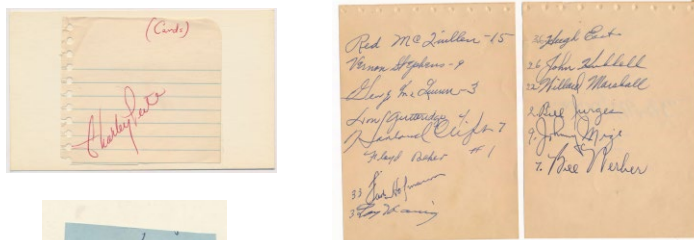 (Cards)
Charley Peete
Red McQuillen - 15
Vernon Stephens - 9
George McQuinn - 3
Don Gutteridge 4
Harlond Clift - 7
Floyd Baker #1
33 Hofmann
3
36 Hugh East
26 John Hubbell
22 Willard Marshall
2. Bill Jurges
9. Johnny Mize
7. Bill Werber